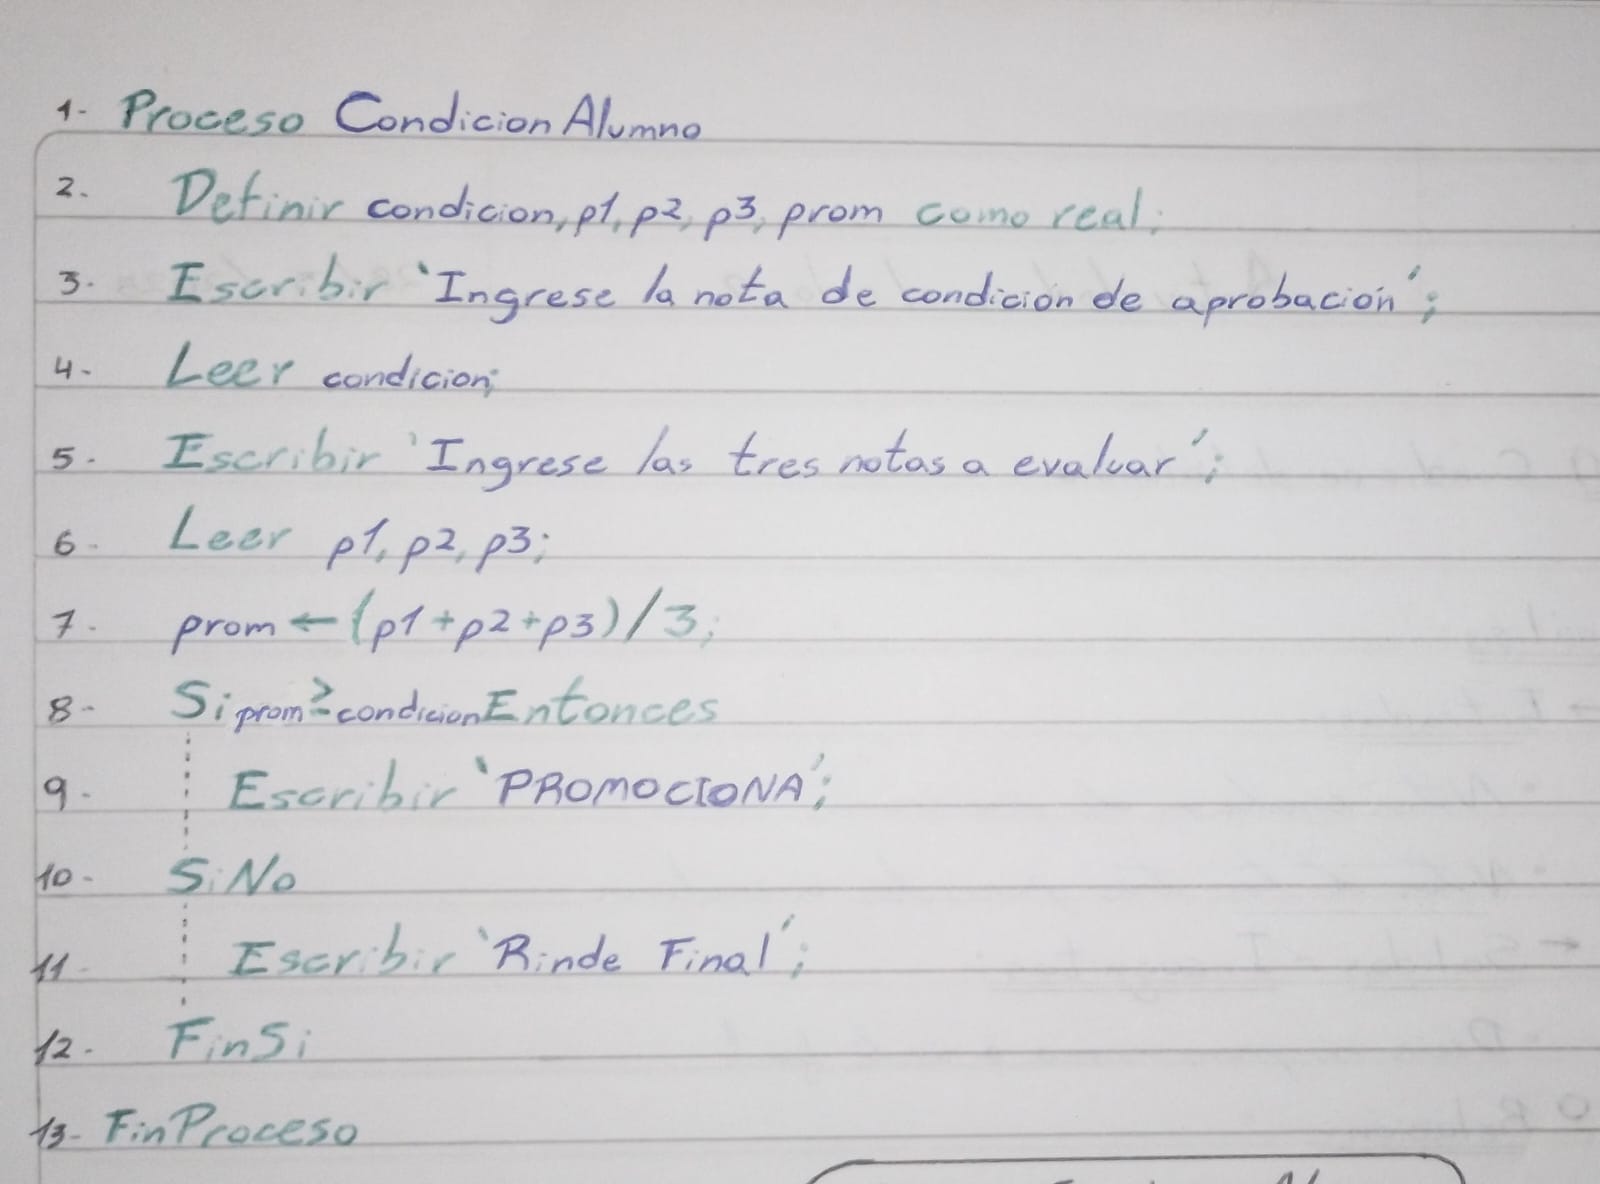 1- Proceso Condicion Alumno
2. Definir condicion, p1, p2, p3, prom como real;
3. Escribir 'Ingrese la nota de condición de aprobación';
4- Leer condicion;
5. Escribir 'Ingrese las tres notas a evaluar';
6- Leer p1, p2, p3;
7. prom ← (p1+p2+p3)/3;
8- Si prom ≥ condicion Entonces
9. Escribir 'PROMOCIONA';
10- SiNo
11- Escribir 'Rinde Final';
12- FinSi
13- FinProceso